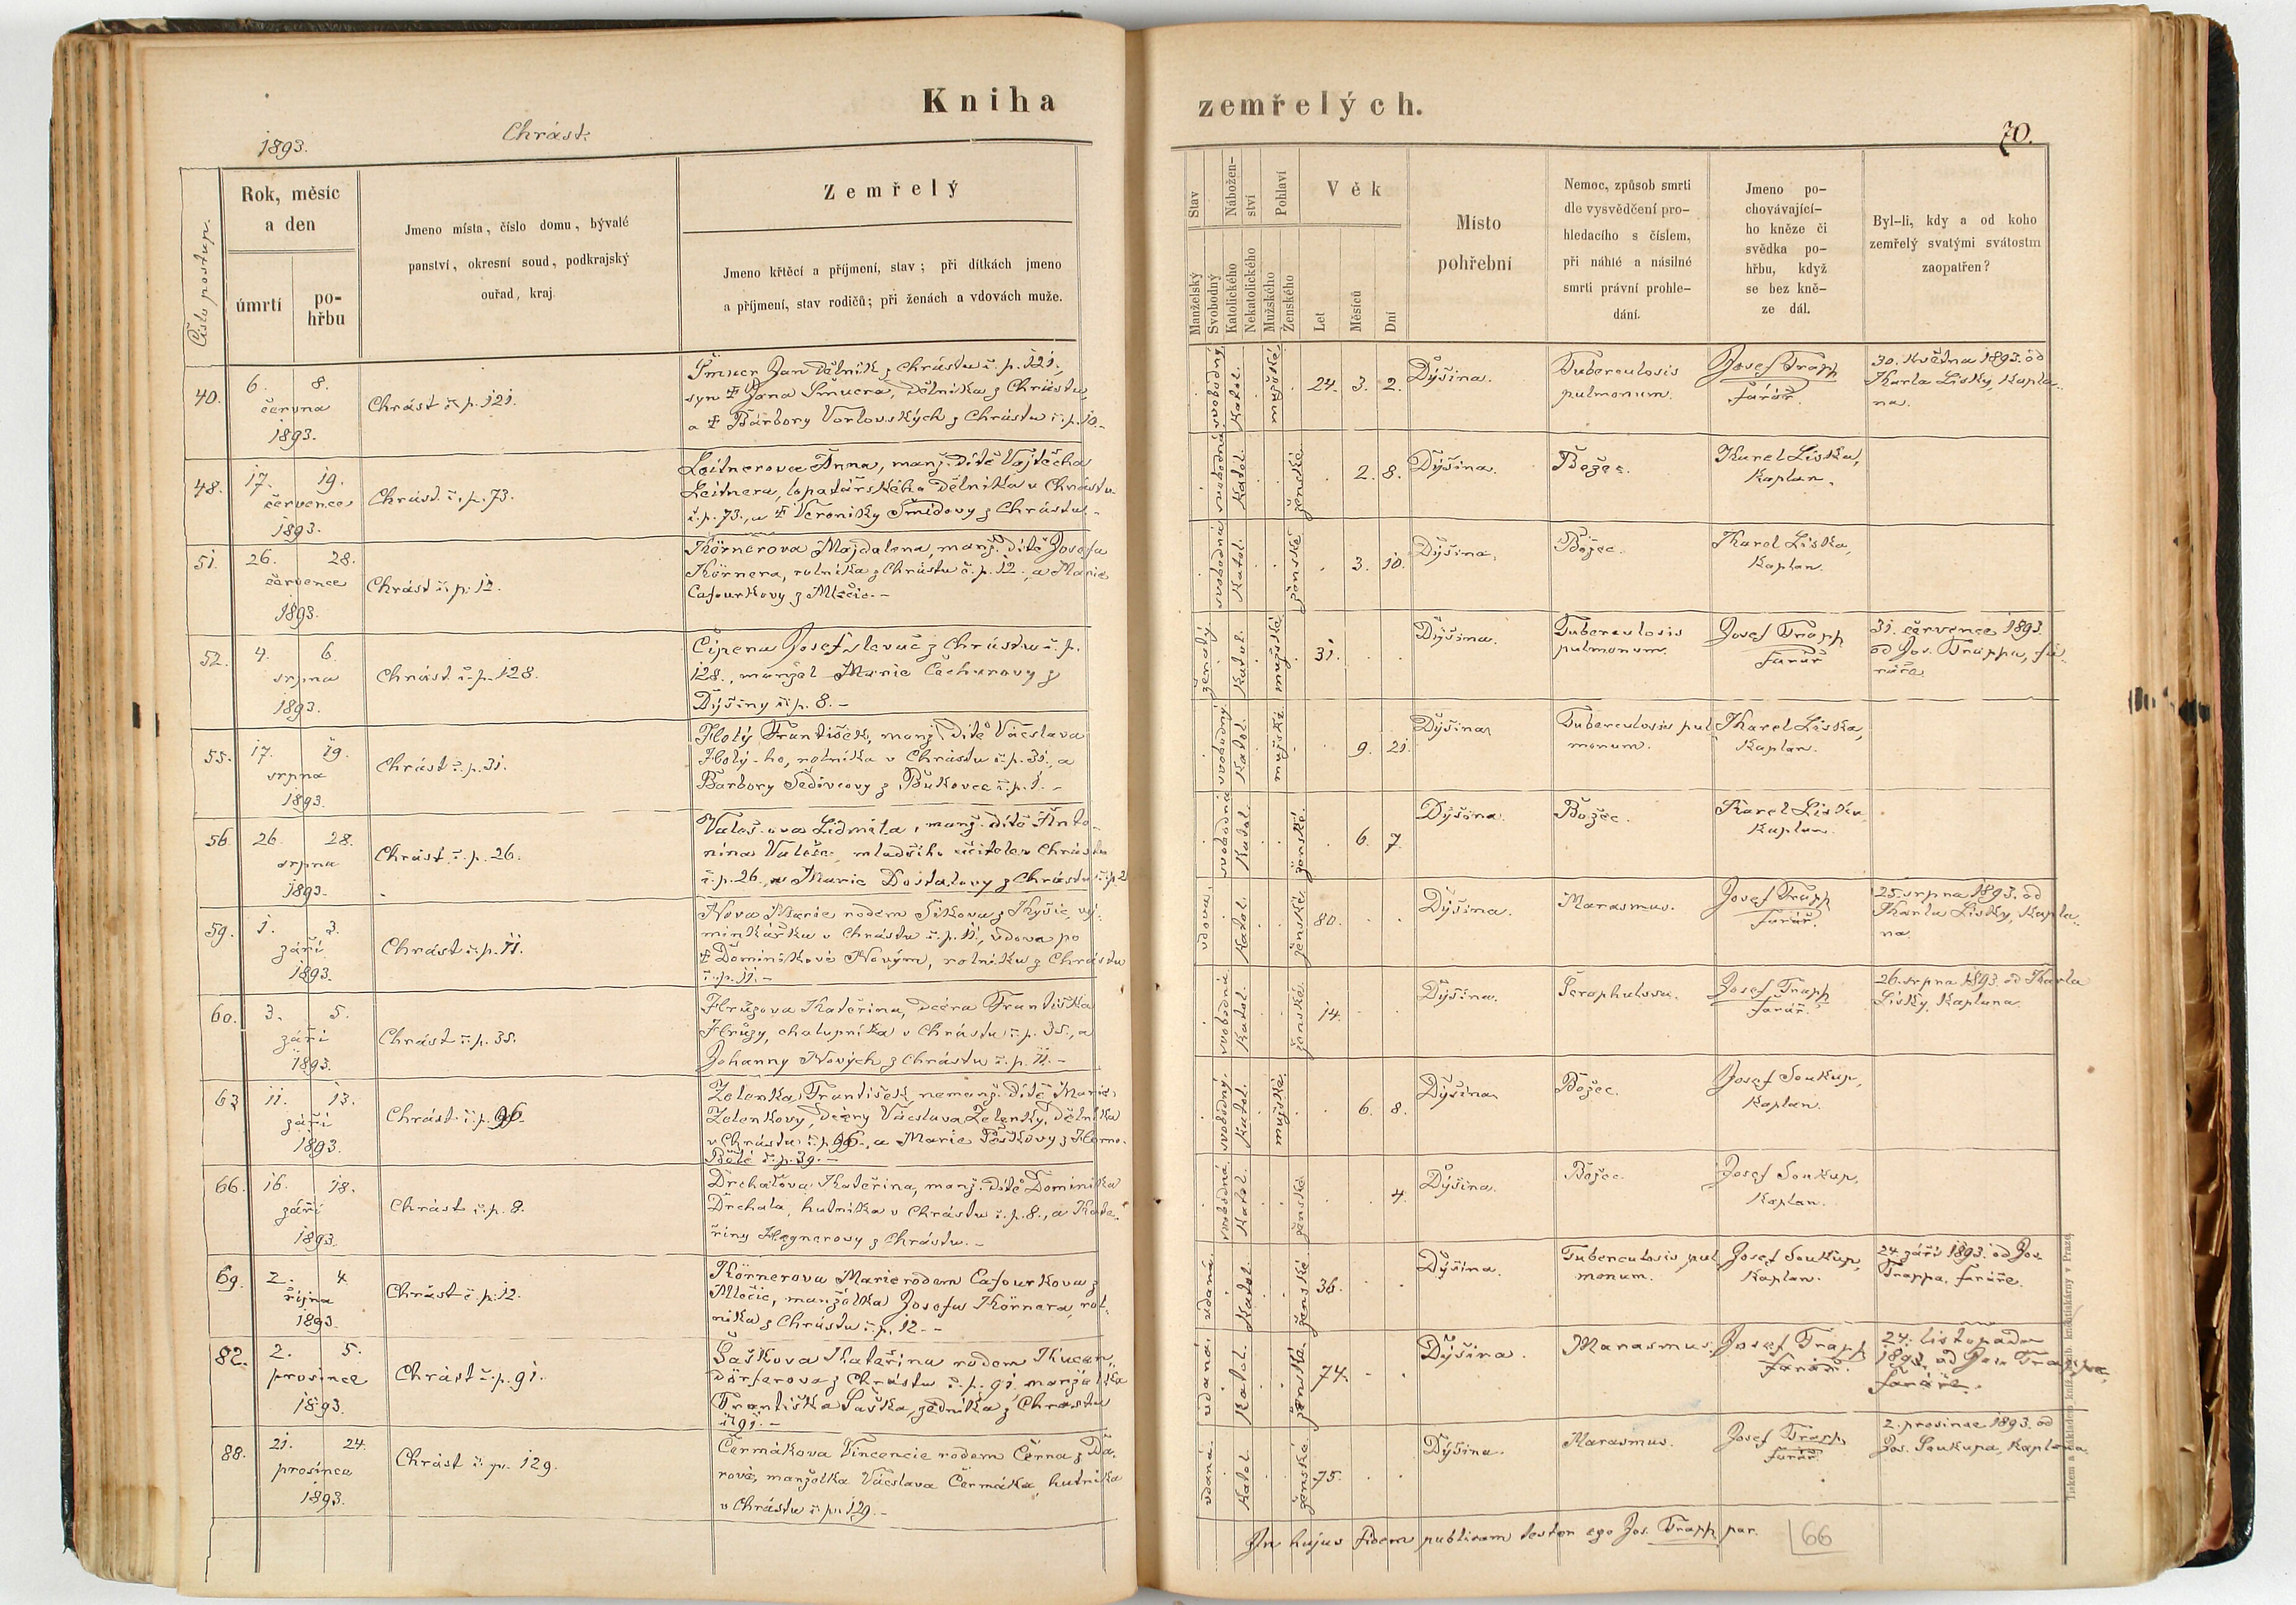 Kniha
1893.
Chrást.
Číslo postup.
Rok, měsíc
a den
úmrtí
po-
hřbu
Jmeno místa, číslo domu, bývalé
panství, okresní soud, podkrajský
ouřad, kraj.
Zemřelý
Jmeno křtěcí a příjmení, stav; při dítkách jmeno
a příjmení, stav rodičů; při ženách a vdovách muže.
40.
6. 8.
června
1893.
Chrást č. p. 121.
Šmucr Jan dělník z Chrástu č. p. 121.,
syn † Jana Šmucra, dělníka z Chrástu,
a † Barbory Vorlovských z Chrástu č. p. 10.-
48.
17. 19.
července
1893.
Chrást č. p. 73.
Leitnerova Anna, manž. dítě Vojtěcha
Leitnera, lopatářského dělníka v Chrástu
č. p. 73., a † Veroniky Šmídovy z Chrástu.-
51.
26. 28.
července
1893.
Chrást č. p. 12.
Körnerova Majdalena, manž. dítě Josefa
Körnera, rolníka z Chrástu č. p. 12., a Marie
Cafourkovy z Mlečic.-
52.
4. 6.
srpna
1893.
Chrást č. p. 128.
Čipera Josef slevač z Chrástu č. p.
128., manžel Marie Čechurovy z
Dýšiny č. p. 8.-
55.
17. 19.
srpna
1893.
Chrást č. p. 31.
Holý František, manž. dítě Václava
Holý-ho, rolníka v Chrástu č. p. 31., a
Barbory Šedivcovy z Bukovce č. p. 1.-
56.
26. 28.
srpna
1893.
Chrást č. p. 26.
Valeš-ova Lidmila, manž. dítě Anto-
nína Valeše, mladšího učitele v Chrástu
č. p. 26., a Marie Dostalovy z Chrástu č. p. 2
59.
1. 3.
září
1893.
Chrást č. p. 11.
Nova Marie rodem Šikova z Kyšic, vý-
minkářka v Chrástu č. p. 11., vdova po
† Dominikovi Novým, rolníku z Chrástu
č. p. 11.-
60.
3. 5.
září
1893.
Chrást č. p. 35.
Hrůzova Kateřina, dcera Františka
Hrůzy, chalupníka v Chrástu č. p. 35., a
Johanny Nových z Chrástu č. p. 11.-
63
11. 13.
září
1893.
Chrást č. p. 96.
Zelenka František, nemanž. dítě Marie
Zelenkovy, dcery Václava Zelenky, dělníka
v Chrástu č. p. 96., a Marie Peškovy z Horno-
Bělé č. p. 39.-
66.
16. 18.
září
1893.
Chrást č. p. 8.
Drchalova Kateřina, manž. dítě Dominika
Drchala, hutníka v Chrástu č. p. 8., a Kate-
řiny Hegnerovy z Chrástu.-
69.
2. 4
října
1893.
Chrást č. p. 12.
Körnerova Marie rodem Cafourkova z
Mlečic, manželka Josefa Körnera, rol-
níka z Chrástu č. p. 12.-
82.
2. 5.
prosince
1893.
Chrást č. p. 91.
Šaškova Kateřina rodem
z Chrástu č. p. 91. manželka
Františka Šaška, zedníka z Chrástu
č. 91.-
88.
21. 24.
prosince
1893.
Chrást č. p. 129.
Čermákova Vincencie rodem Černa z Da-
rové, manželka Václava Čermáka, hutníka
v Chrástu č. p. 129.-
zemřelých.
70.
Stav
Nábožen-
ství
Pohlaví
Věk
Manželský
Svobodný
Katolického
Nekatolického
Mužského
Ženského
Let
Měsíců
Dní
Místo
pohřební
Nemoc, způsob smrti
dle vysvědčení pro-
hledacího s číslem,
při náhlé a násilné
smrti právní prohle-
dání.
Jmeno po-
chovávající-
ho kněze či
svědka po-
hřbu, když
se bez kně-
ze dál.
Byl-li, kdy a od koho
zemřelý svatými svátostm
zaopatřen?
svobodný Katol. mužské 24. 3. 2. Dýšina.
Tuberculosis
pulmonum.
Josef Trapp
farář.
30. května 1893. od
Karla Lisky, kapla-
na.
svobodná Katol. ženské 2. 8. Dýšina. Božec.
Karel Liska,
Kaplan.
svobodná Katol. ženské 3. 10. Dýšina. Božec.
Karel Liska,
Kaplan.
ženatý Katol. mužské 31. Dýšina.
Tuberculosis
pulmonum.
Josef Trapp
farář
31. července 1893.
od Jos. Trappa, fa-
ráře.
svobodný Katol. mužské 9. 21. Dýšina
Tuberculosis pul
monum.
Karel Liska,
Kaplan.
svobodná Katol. ženské 6. 7. Dýšina. Božec.
Karel Liska
Kaplan.
vdova. Katol. ženské 80. Dýšina. Marasmus.
Josef Trapp
farář.
25. srpna 1893. od
Karla Lisky, kapla-
na.
svobodná Katol. ženské 14. Dýšina.
Josef Trapp
farář.
26. srpna 1893. od Karla
Lisky, Kaplana
svobodný. Katol. mužské 6. 8. Dýšina Božec.
Josef Soukup,
Kaplan.
svobodná Katol. ženské 4. Dýšina. Božec.
Josef Soukup,
Kaplan.
vdaná. Katol. ženské 36. Dýšina.
Tuberculosis pul
monum.
Josef Soukup,
Kaplan.
24. září 1893. od Jos.
Trappa, faráře.
vdaná. Katol. ženská 74. Dýšina. Marasmus.
Josef Trapp
farář.
24. listopadu
1893. od Jos. Trappa,
faráře.
vdaná. Katol. ženská 75. Dýšina. Marasmus.
Josef Trapp
farář
2. prosince 1893. od
Jos. Soukupa, Kaplana.
In hujus fidem publicam testor ego Jos. Trapp par.
66